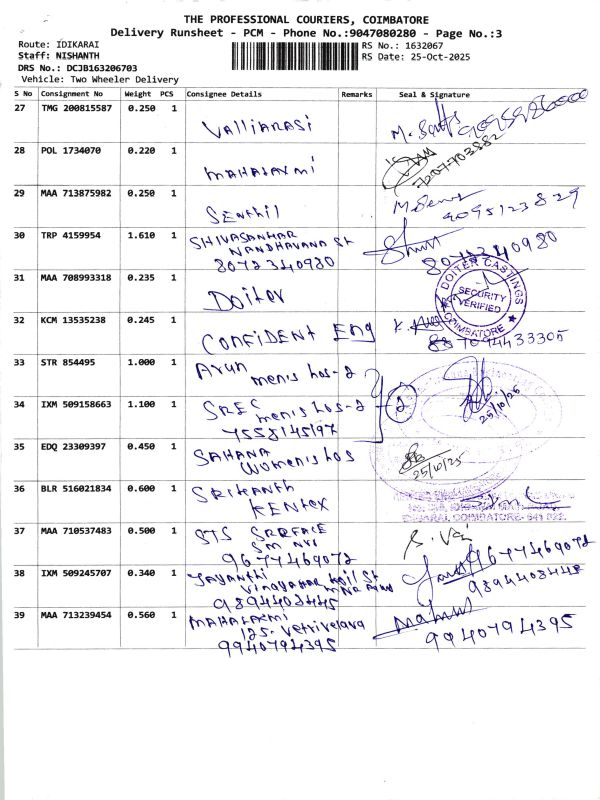 THE PROFESSIONAL COURIERS, COIMBATORE
Delivery Runsheet - PCM - Phone No.:9047080280 - Page No.:3
Route: IDIKARAI
RS No.: 1632067
Staff: NISHANTH
RS Date: 25-Oct-2025
DRS No.: DCJB163206703
Vehicle: Two Wheeler Delivery
S No Consignment No Weight PCS Consignee Details Remarks Seal & Signature
27 TMG 200815587 0.250 1
Valliarasi
28 POL 1734070 0.220 1
MAHALAXMI
7207-703882
29 MAA 713875982 0.250 1
Senthil
9095123829
30 TRP 4159954 1.610 1
SHIVASANKAR
NANDHAVANA St
8072340980
8072340980
31 MAA 708993318 0.235 1
Doiter
DOITER CASTINGS
SECURITY
VERIFIED
COIMBATORE
32 KCM 13535238 0.245 1
CONFIDENT Eng
7094433305
33 STR 854495 1.000 1
Arun
mens hos-2
2
25/10/25
34 IXM 509158663 1.100 1
SREC
mens hos-2
7558145197
35 EDQ 23309397 0.450 1
SAHANA
Womens hos
25/10/25
36 BLR 516021834 0.600 1
SRIKANTH
KENTEX
COIMBATORE-641 022.
37 MAA 710537483 0.500 1
STS SRRFACE
9677469072
9677469072
38 IXM 509245707 0.340 1
Jayanthi
Vinayahar koil St
9894408445
9894408448
39 MAA 713239454 0.560 1
MAHALAXMI
125-Vetrivelava
9940794395
9940794395